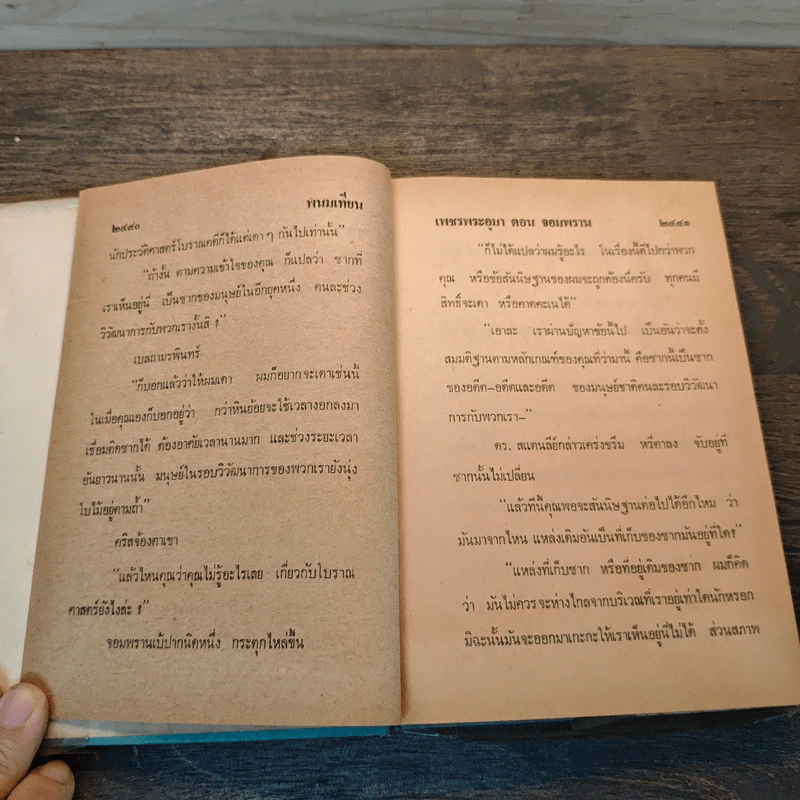 พนมเทียน
๒๔๔๐
นักประวัติศาสตร์โบราณคดีก็ได้แต่เดา ๆ กันไปเท่านั้น”
“ถ้างั้น ตามความเข้าใจของคุณ ก็แปลว่า ซากที่
เราเห็นอยู่นี่ เป็นซากของมนุษย์ในอีกยุคหนึ่ง คนละช่วง
วิวัฒนาการกับพวกเรางั้นสิ ?”
เบลถามรพินทร์
“ก็บอกแล้วว่าให้ผมเดา ผมก็อยากจะเดาเช่นนี้
ในเมื่อคุณเองก็บอกอยู่ว่า กว่าหินย้อยจะใช้เวลางอกลงมา
เชื่อมติดซากได้ ต้องอาศัยเวลานานมาก และช่วงระยะเวลา
อันยาวนานนั้น มนุษย์ในรอบวิวัฒนาการของพวกเรายังนุ่ง
ใบไม้อยู่ตามถ้ำ”
คริสจ้องตาเขา
“แล้วไหนคุณว่าคุณไม่รู้อะไรเลย เกี่ยวกับโบราณ
ศาสตร์ยังไงล่ะ ?”
จอมพรานเบ้ปากนิดหนึ่ง กระตุกไหล่ขึ้น
เพชรพระอุมา ตอน จอมพราน ๒๔๔๑
“ก็ไม่ได้แปลว่าผมรู้อะไร ในเรื่องนี้ดีไปกว่าพวก
คุณ หรือข้อสันนิษฐานของผมจะถูกต้องนี่ครับ ทุกคนมี
สิทธิ์จะเดา หรือคาดคะเนได้”
“เอาละ เราผ่านปัญหาข้อนี้ไป เป็นอันว่าจะตั้ง
สมมติฐานตามหลักเกณฑ์ของคุณที่ว่ามานี้ คือซากนี้เป็นซาก
ของอดีต–อดีตและอดีต ของมนุษย์ชาติคนละรอบวิวัฒนา
การกับพวกเรา–”
ดร. สแตนลีย์กล่าวเคร่งขรึม หรี่ตาลง จับอยู่ที่
ซากนั้นไม่เปลี่ยน
“แล้วทีนี้คุณพอจะสันนิษฐานต่อไปได้อีกไหม ว่า
มันมาจากไหน แหล่งเดิมอันเป็นที่เก็บของซากมันอยู่ที่ใด?”
“แหล่งที่เก็บซาก หรือที่อยู่เดิมของซาก ผมก็คิด
ว่า มันไม่ควรจะห่างไกลจากบริเวณที่เราอยู่เท่าใดนักหรอก
มิฉะนั้นมันจะออกมาเกะกะให้เราเห็นอยู่นี่ไม่ได้ ส่วนสภาพ